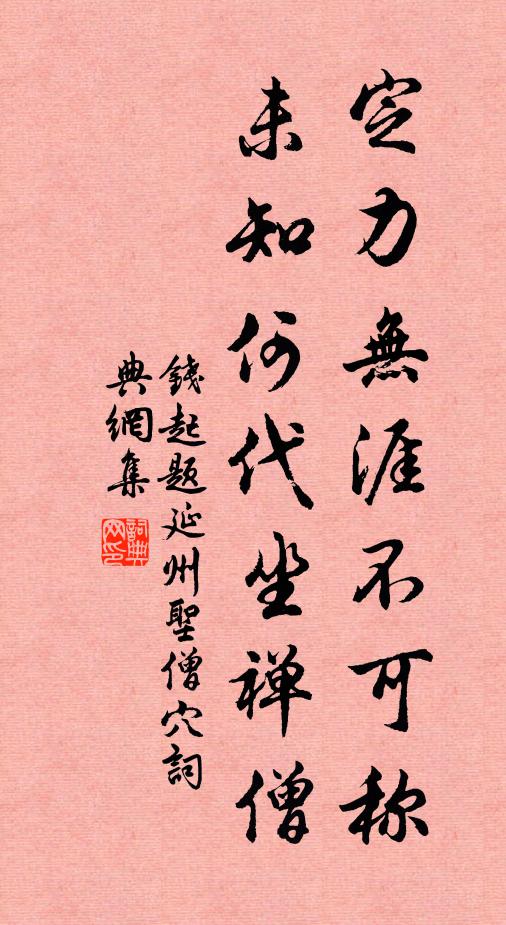 定力無涯不可称
未知何代坐禅僧
錢起题延州聖僧穴詞
典網集
詞典
网印